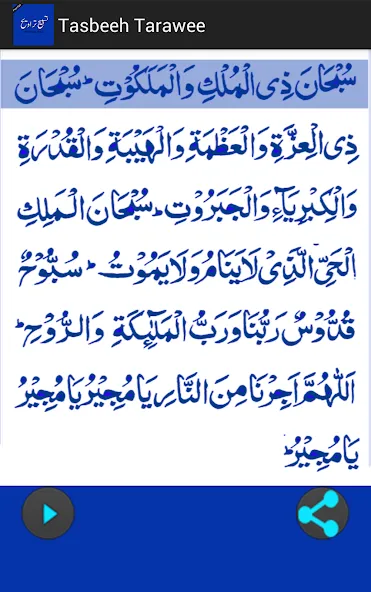 Tasbeeh Tarawee
سُبْحَانَ ذِی الْمُلْكِ وَالْمَلَكُوْتِ ۔ سُبْحَانَ
ذِی الْعِزَّةِ وَالْعَظْمَةِ وَالْهَيْبَةِ وَالْقُدْرَةِ
وَالْكِبْرِيَآءِ وَالْجَبَرُوْتِ ۔ سُبْحَانَ الْمَلِكِ
الْحَیِّ الَّذِیْ لَا يَنَامُ وَلَا يَمُوْتُ ۔ سُبُّوْحٌ
قُدُّوْسٌ رَبُّنَا وَرَبُّ الْمَلٰٓئِكَةِ وَالرُّوْحِ ۔
اَللّٰهُمَّ اَجِرْنَا مِنَ النَّارِ يَا مُجِيْرُ يَا مُجِيْرُ
يَا مُجِيْرُ ۔